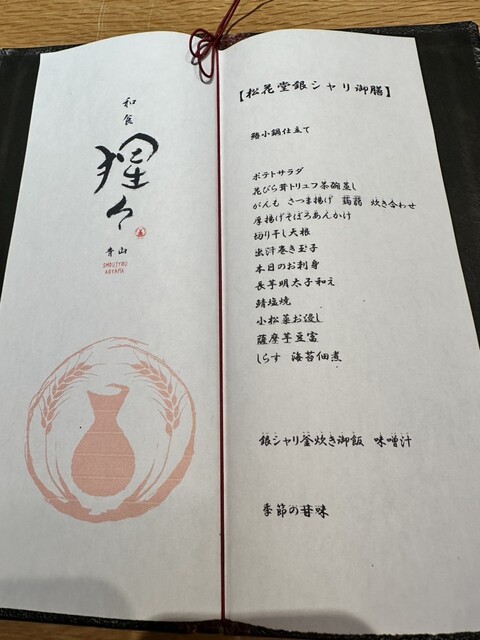 和食
猩々
青山
SHOUJYOU
AOYAMA
【松花堂銀シャリ御膳】
小鍋仕立て
ポテトサラダ
花びら茸トリュフ茶碗蒸し
がんも さつま揚げ 蒟蒻 炊き合わせ
厚揚げそぼろあんかけ
切り干し大根
出汁巻き玉子
本日のお刺身
長芋明太子和え
鯖塩焼
小松菜お浸し
薩摩芋豆富
しらす 海苔佃煮
銀シャリ釜炊き御飯 味噌汁
季節の甘味